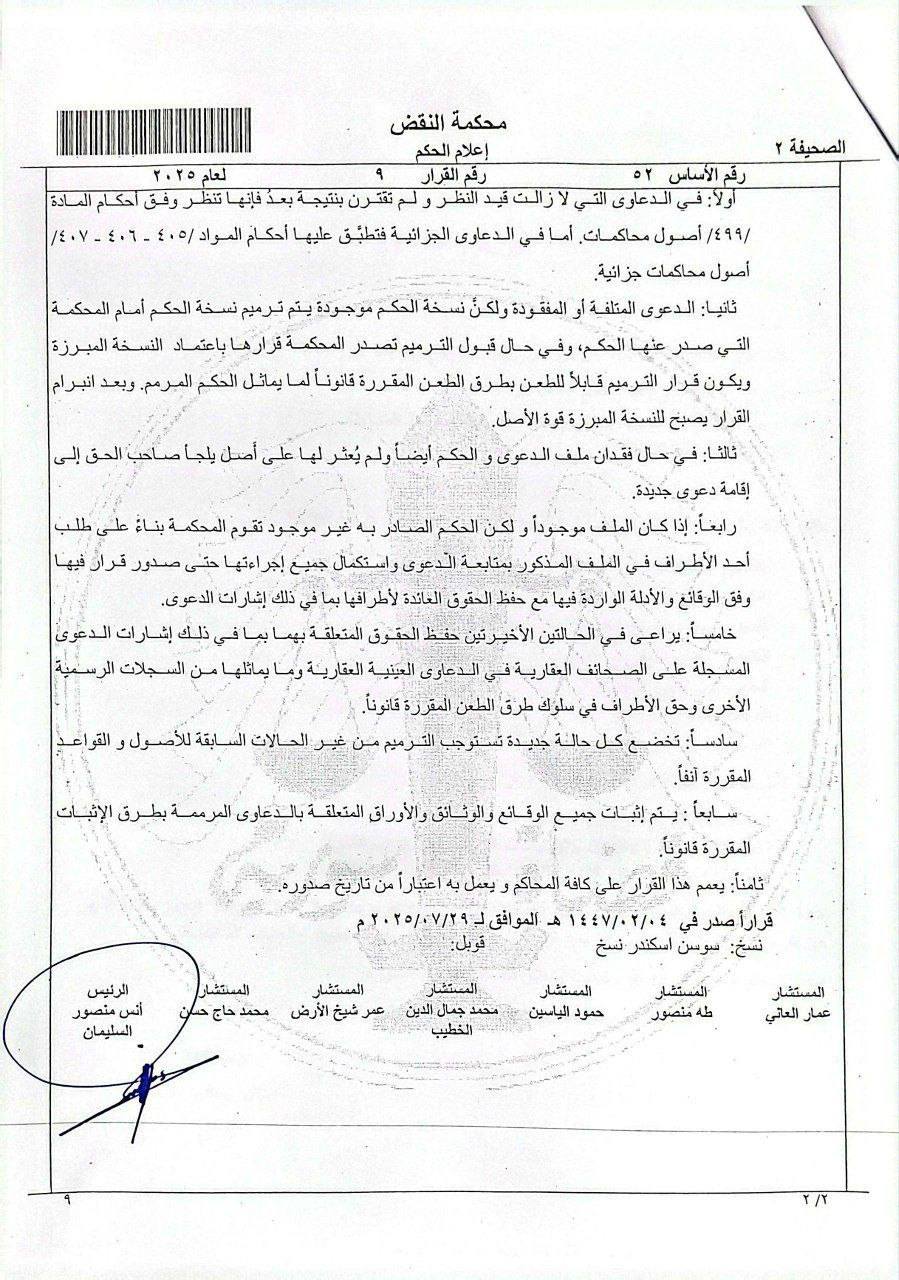 محكمة النقض
إعلام الحكم
الصحيفة ٢
رقم الأساس ٥٢ رقم القرار ٩ لعام ٢٠٢٥
أولاً: في الدعاوى التي لا زالت قيد النظر و لم تقترن بنتيجة بعدُ فإنها تنظر وفق أحكام المادة
/٤٩٩/ أصول محاكمات. أما في الدعاوى الجزائية فتطبَّق عليها أحكام المواد /٤٠٥ – ٤٠٦ – ٤٠٧/
أصول محاكمات جزائية.
ثانيا: الدعوى المتلفة أو المفقودة ولكنَّ نسخة الحكم موجودة يتم ترميم نسخة الحكم أمام المحكمة
التي صدر عنها الحكم، وفي حال قبول الترميم تصدر المحكمة قرارها باعتماد النسخة المبرزة
ويكون قرار الترميم قابلاً للطعن بطرق الطعن المقررة قانوناً لما يماثل الحكم المرمم. وبعد انبرام
القرار يصبح للنسخة المبرزة قوة الأصل.
ثالثا: في حال فقدان ملف الدعوى و الحكم أيضاً ولم يُعثر لها على أصل يلجأ صاحب الحق إلى
إقامة دعوى جديدة.
رابعاً: إذا كان الملف موجوداً و لكن الحكم الصادر به غير موجود تقوم المحكمة بناءً على طلب
أحد الأطراف في الملف المذكور بمتابعة الدعوى واستكمال جميع إجراءتها حتى صدور قرار فيها
وفق الوقائع والأدلة الواردة فيها مع حفظ الحقوق العائدة لأطرافها بما في ذلك إشارات الدعوى.
خامساً: يراعى في الحالتين الأخيرتين حفظ الحقوق المتعلقة بهما بما في ذلك إشارات الدعوى
المسجلة على الصحائف العقارية في الدعاوى العينية العقارية وما يماثلها من السجلات الرسمية
الأخرى وحق الأطراف في سلوك طرق الطعن المقررة قانوناً.
سادساً: تخضع كل حالة جديدة تستوجب الترميم من غير الحالات السابقة للأصول و القواعد
المقررة آنفاً.
سابعاً : يتم إثبات جميع الوقائع والوثائق والأوراق المتعلقة بالدعاوى المرممة بطرق الإثبات
المقررة قانوناً.
ثامناً: يعمم هذا القرار على كافة المحاكم و يعمل به اعتباراً من تاريخ صدوره.
قراراً صدر في ١٤٤٧/٠٢/٠٤ هـ الموافق لـ ٢٠٢٥/٠٧/٢٩ م
نسخ: سوسن اسكندر نسخ قوبل:
المستشار المستشار المستشار المستشار المستشار المستشار الرئيس
عمار العاني طه منصور حمود الياسين محمد جمال الدين عمر شيخ الأرض محمد حاج حسن أنس منصور
الخطيب السليمان
٢/٢ ٩